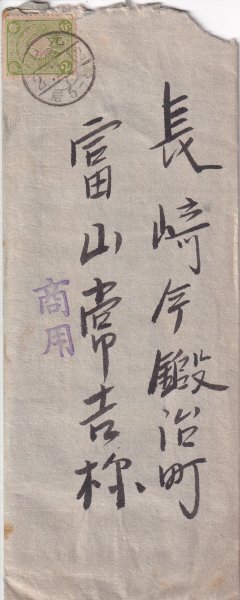 長崎今鍛冶町
富山常吉様
商用